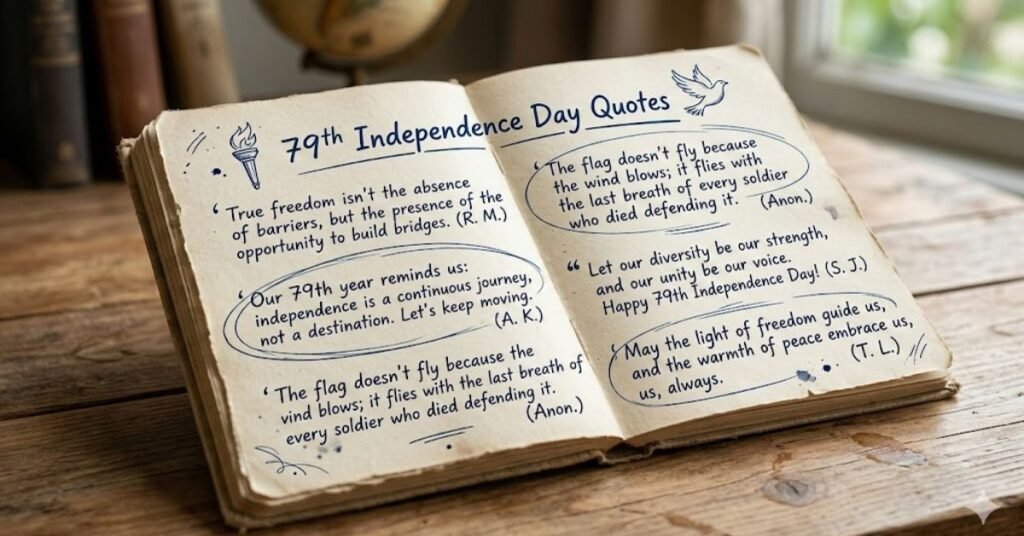 79th Independence Day Quotes
‘ True freedom isn't the absence
of barriers, but the presence of the
opportunity to build bridges. (R. M.)
‘ Our 79th year reminds us:
independence is a continuous journey,
not a destination. Let's keep moving.
(A. K.)
‘ The flag doesn't fly because the
vind blows; it flies with the last breath of
every soldier who died defending it.
(Anon.)
‘ The flag doesn't fly because
the wind blows; it flies with
the last breath of every soldier
who died defending it. (Anon.)
“ Let our diversity be our strength,
and our unity be our voice.
Happy 79th Independence Day! (S. J.)
‘ May the light of freedom guide us,
and the warmth of peace embrace us,
us, always. (T. L.)